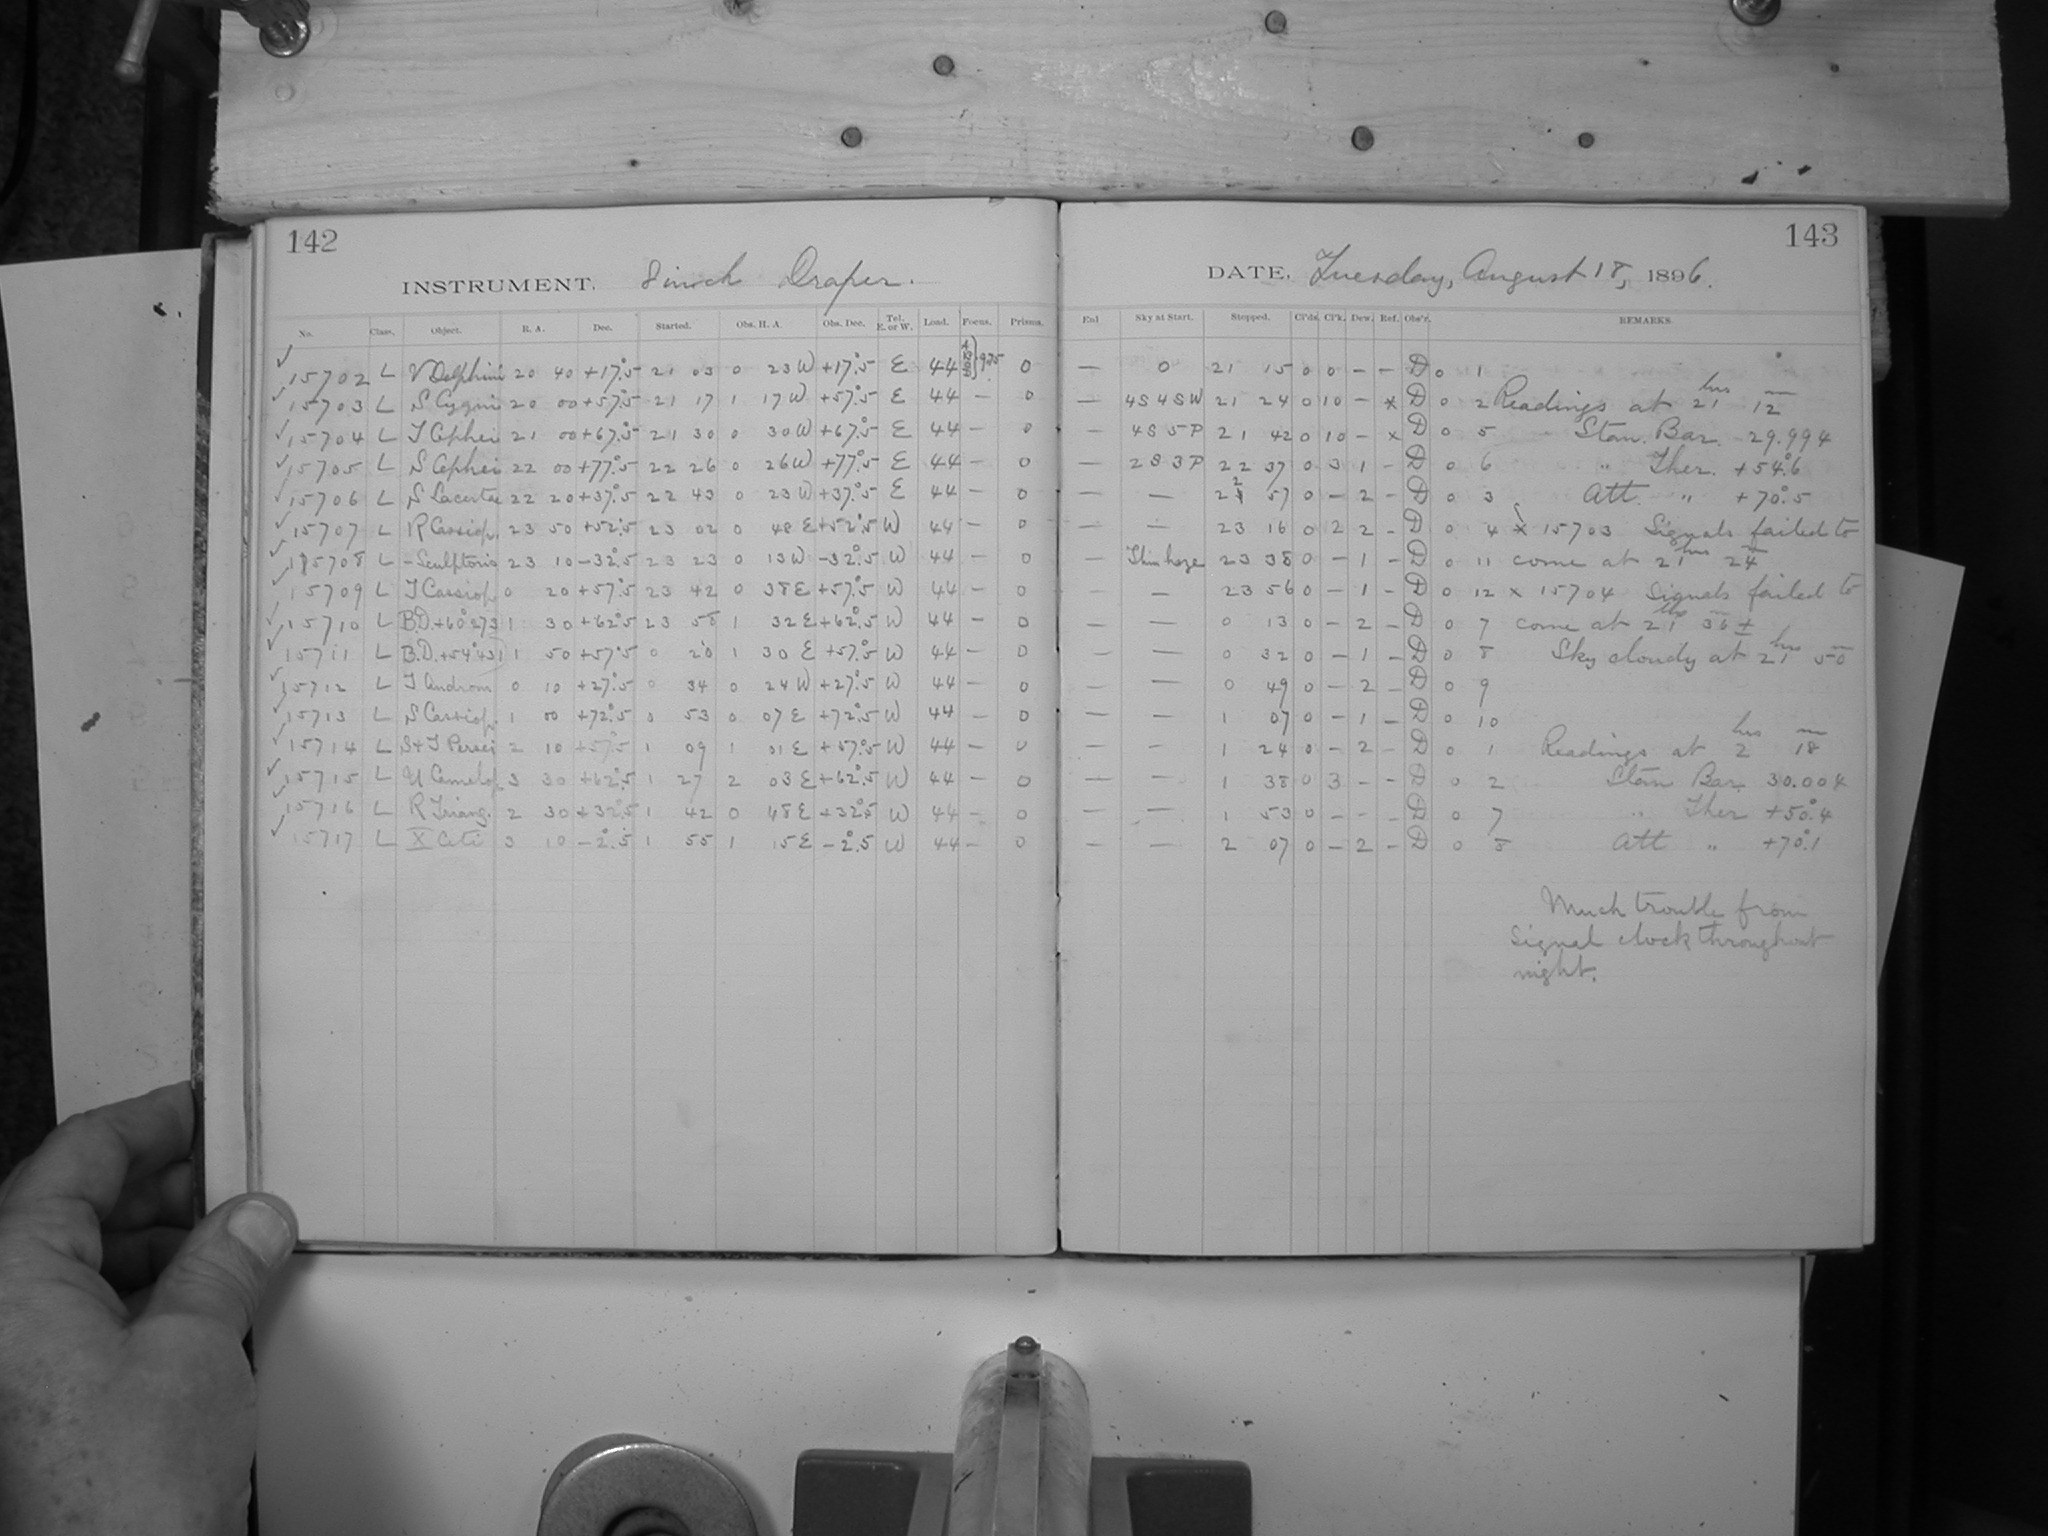 142
INSTRUMENT. 8 inch Draper.
No. Class. Object. R. A. Dec. Started. Obs. H. A. Obs. Dec. Tel. E. or W. Load. Focus. Prisms.
15702 L V Delphini 20 40 +17°.5 21 03 0 23 W +17°.5 E 44 9.75 0
15703 L S Cygni 20 00 +57°.5 21 17 1 17 W +57°.5 E 44 — 0
15704 L T Cephei 21 00 +67°.5 21 30 0 30 W +67°.5 E 44 — 0
15705 L S Cephei 22 00 +77°.5 22 26 0 26 W +77°.5 E 44 — 0
15706 L S Lacertae 22 20 +37°.5 22 43 0 23 W +37°.5 E 44 — 0
15707 L R Cassiop. 23 50 +52°.5 23 02 0 48 E +52°.5 W 44 — 0
15708 L - Sculptoris 23 10 -32°.5 23 23 0 13 W -32°.5 W 44 — 0
15709 L T Cassiop. 0 20 +57°.5 23 42 0 38 E +57°.5 W 44 — 0
15710 L B.D.+60°273 1 30 +62°.5 23 58 1 32 E +62°.5 W 44 — 0
15711 L B.D.+54°431 1 50 +57°.5 0 20 1 30 E +57°.5 W 44 — 0
15712 L T Androm 0 10 +27°.5 0 34 0 24 W +27°.5 W 44 — 0
15713 L S Cassiop. 1 00 +72°.5 0 53 0 07 E +72°.5 W 44 — 0
15714 L S+T Persei 2 10 +57°.5 1 09 1 01 E +57°.5 W 44 — 0
15715 L U Camelop. 3 30 +62°.5 1 27 2 03 E +62°.5 W 44 — 0
15716 L R Triang. 2 30 +32°.5 1 42 0 48 E +32°.5 W 44 — 0
15717 L X Ceti 3 10 -2°.5 1 55 1 15 E -2°.5 W 44 — 0
143
DATE. Tuesday, August 18, 1896.
Exl Sky at Start. Stopped. Cl'ds. Cl'k. Dew. Ref. Obs'r. REMARKS.
— 0 21 15 0 0 - - D 0 1
— 4S 4SW 21 24 0 10 - x D 0 2 Readings at 21 hrs 12 m
— 4S 5P 21 42 0 10 - x D 0 5 Stan. Bar. 29.994
— 2S 3P 22 37 0 3 1 - D 0 6 " Ther. +54°.6
— — 22 57 0 - 2 - D 0 3 Att. " +70°.5
— — 23 16 0 2 2 - D 0 4 x 15703 Signals failed to
— Thin haze 23 38 0 - 1 - D 0 11 come at 21 hrs 24 m
— — 23 56 0 - 1 - D 0 12 x 15704 Signals failed to
— — 0 13 0 - 2 - D 0 7 come at 21 hrs 36 m ±
— — 0 32 0 - 1 - D 0 8 Sky cloudy at 21 hrs 50 m
— — 0 49 0 - 2 - D 0 9
— — 1 07 0 - 1 - D 0 10
— — 1 24 0 - 2 - D 0 1 Readings at 2 hrs 18 m
— — 1 38 0 3 - - D 0 2 Stan Bar. 30.004
— — 1 53 0 - - - D 0 7 " Ther +50°.4
— — 2 07 0 - 2 - D 0 8 Att " +70°.1
Much trouble from
signal clock throughout
night.